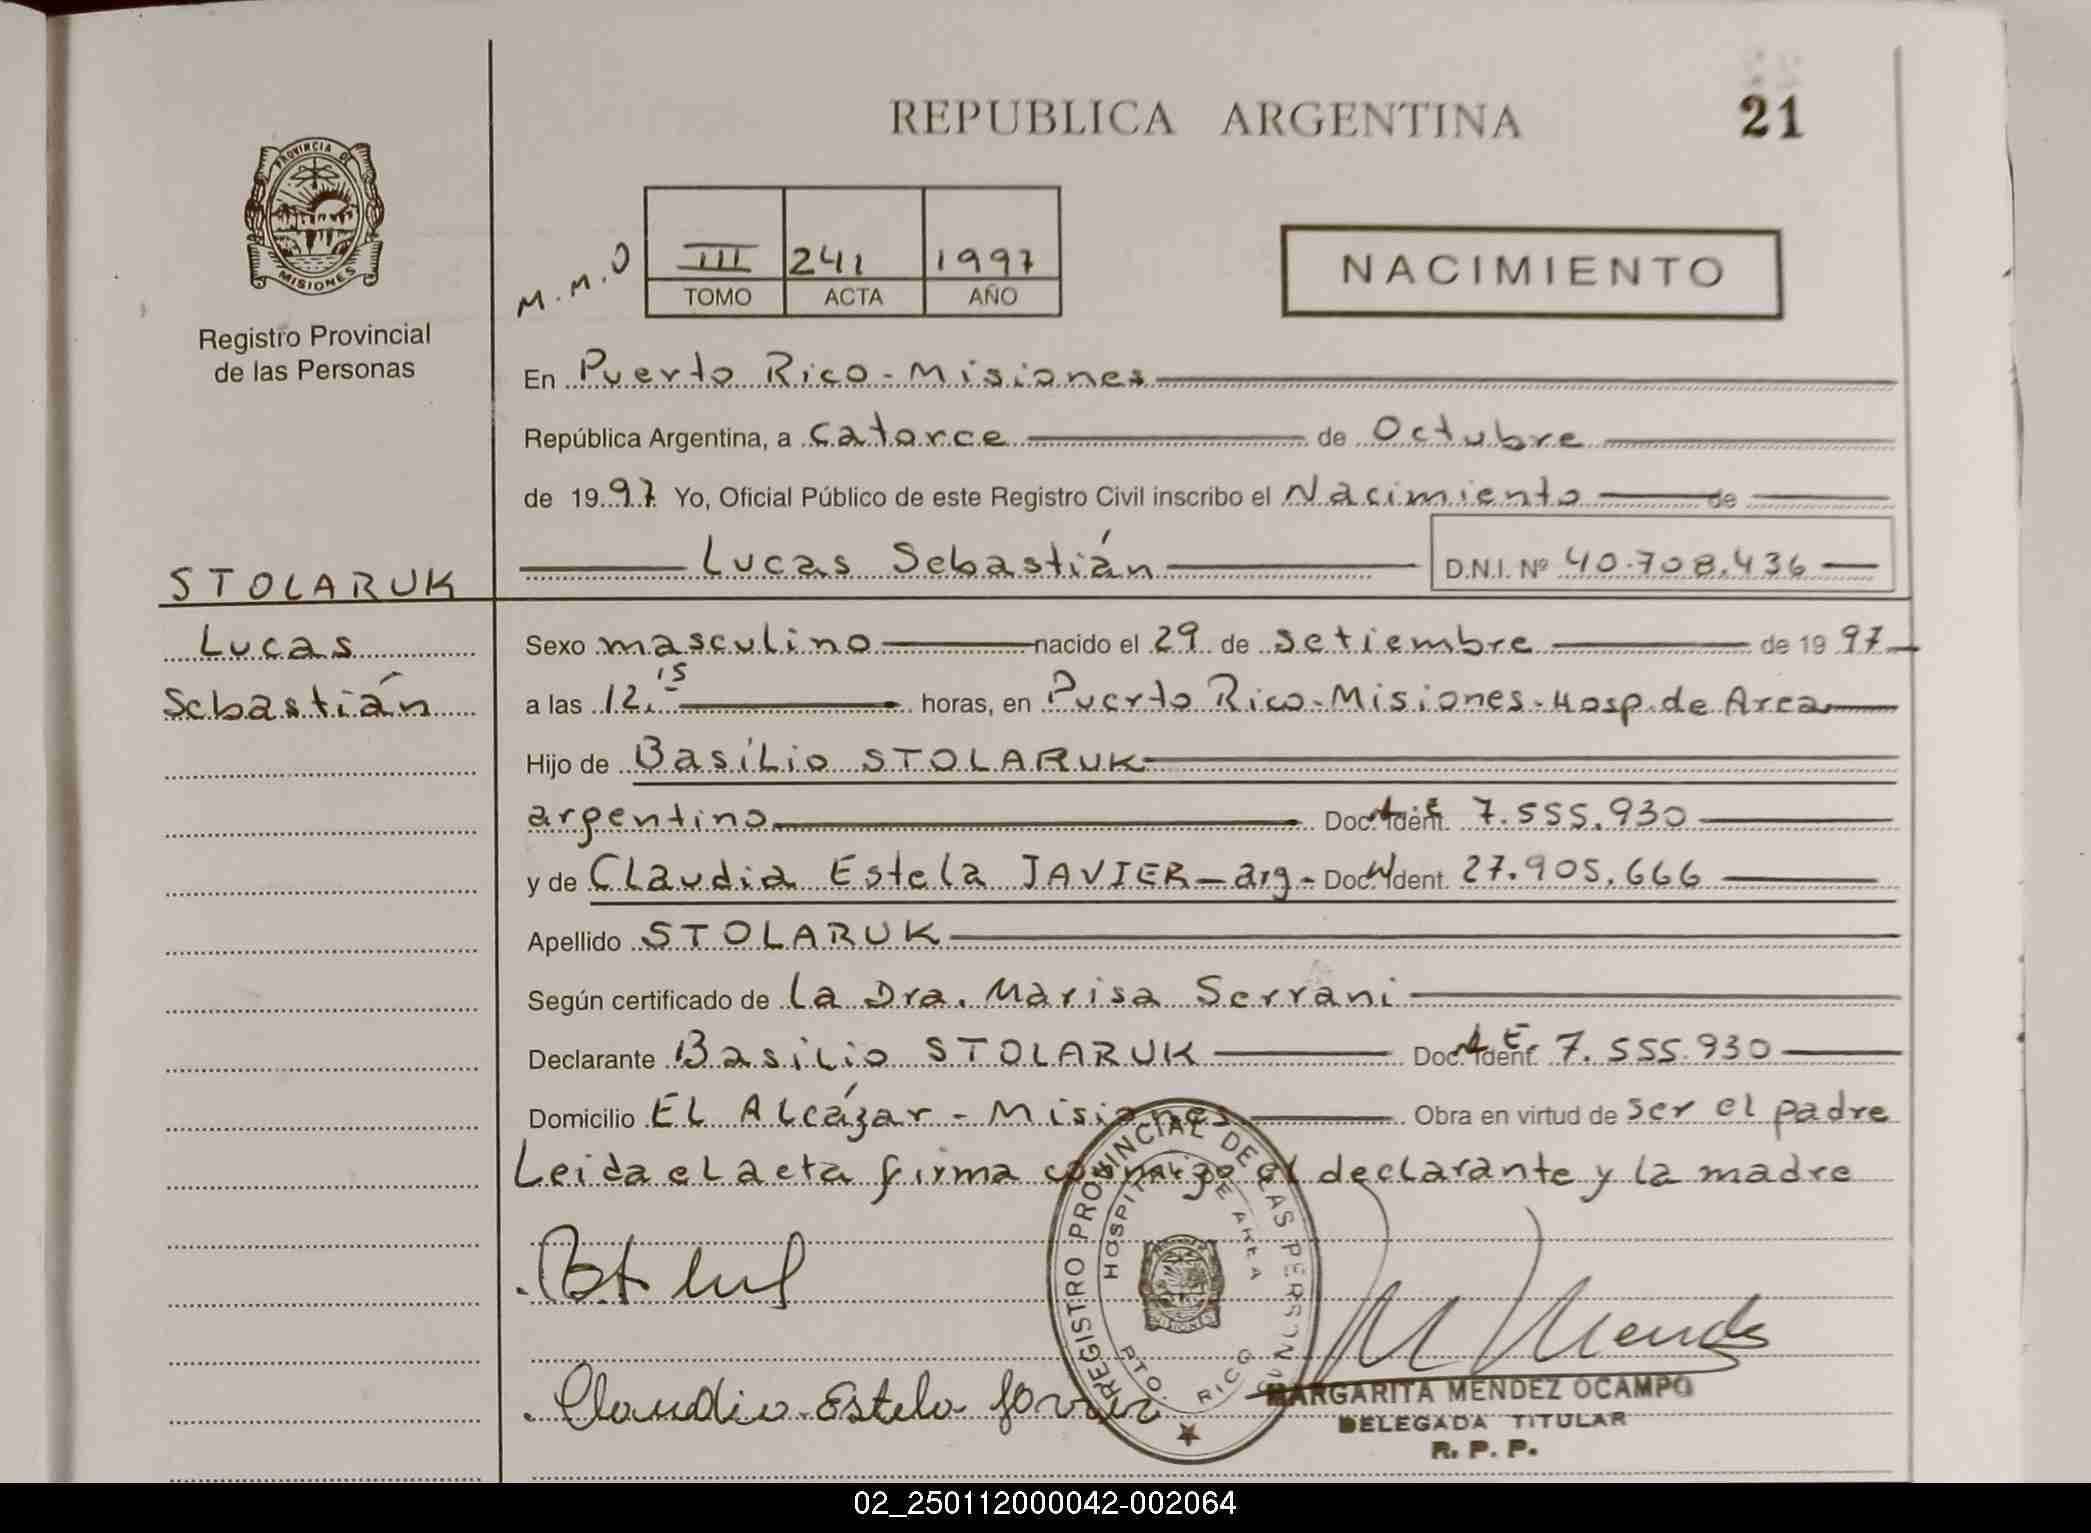 REPUBLICA ARGENTINA
21
PROVINCIA DE
MISIONES
Registro Provincial
de las Personas
M.M.O
III 241 1997
TOMO ACTA AÑO
NACIMIENTO
En Puerto Rico - Misiones
República Argentina, a catorce de Octubre
de 1997 Yo, Oficial Público de este Registro Civil inscribo el Nacimiento de
Lucas Sebastián D.N.I. Nº 40.708.436
STOLARUK
Lucas
Sebastián
Sexo masculino nacido el 29 de setiembre de 1997
a las 12.15 horas, en Puerto Rico - Misiones - Hosp. de Area
Hijo de Basilio STOLARUK
argentino Doc. Ident. 7.555.930
y de Claudia Estela JAVIER - arg - Doc. Ident. 27.905.666
Apellido STOLARUK
Según certificado de la Dra. Marisa Serrani
Declarante Basilio STOLARUK Doc. Ident. 7.555.930
Domicilio EL Alcázar - Misiones Obra en virtud de ser el padre
Leida el acta firma conmigo el declarante y la madre
REGISTRO PROVINCIAL DE LAS PERSONAS
HOSPITAL DE AREA
PTO. RICO
Claudia Estela Javier
MARGARITA MENDEZ OCAMPO
DELEGADA TITULAR
R. P. P.
02_250112000042-002064